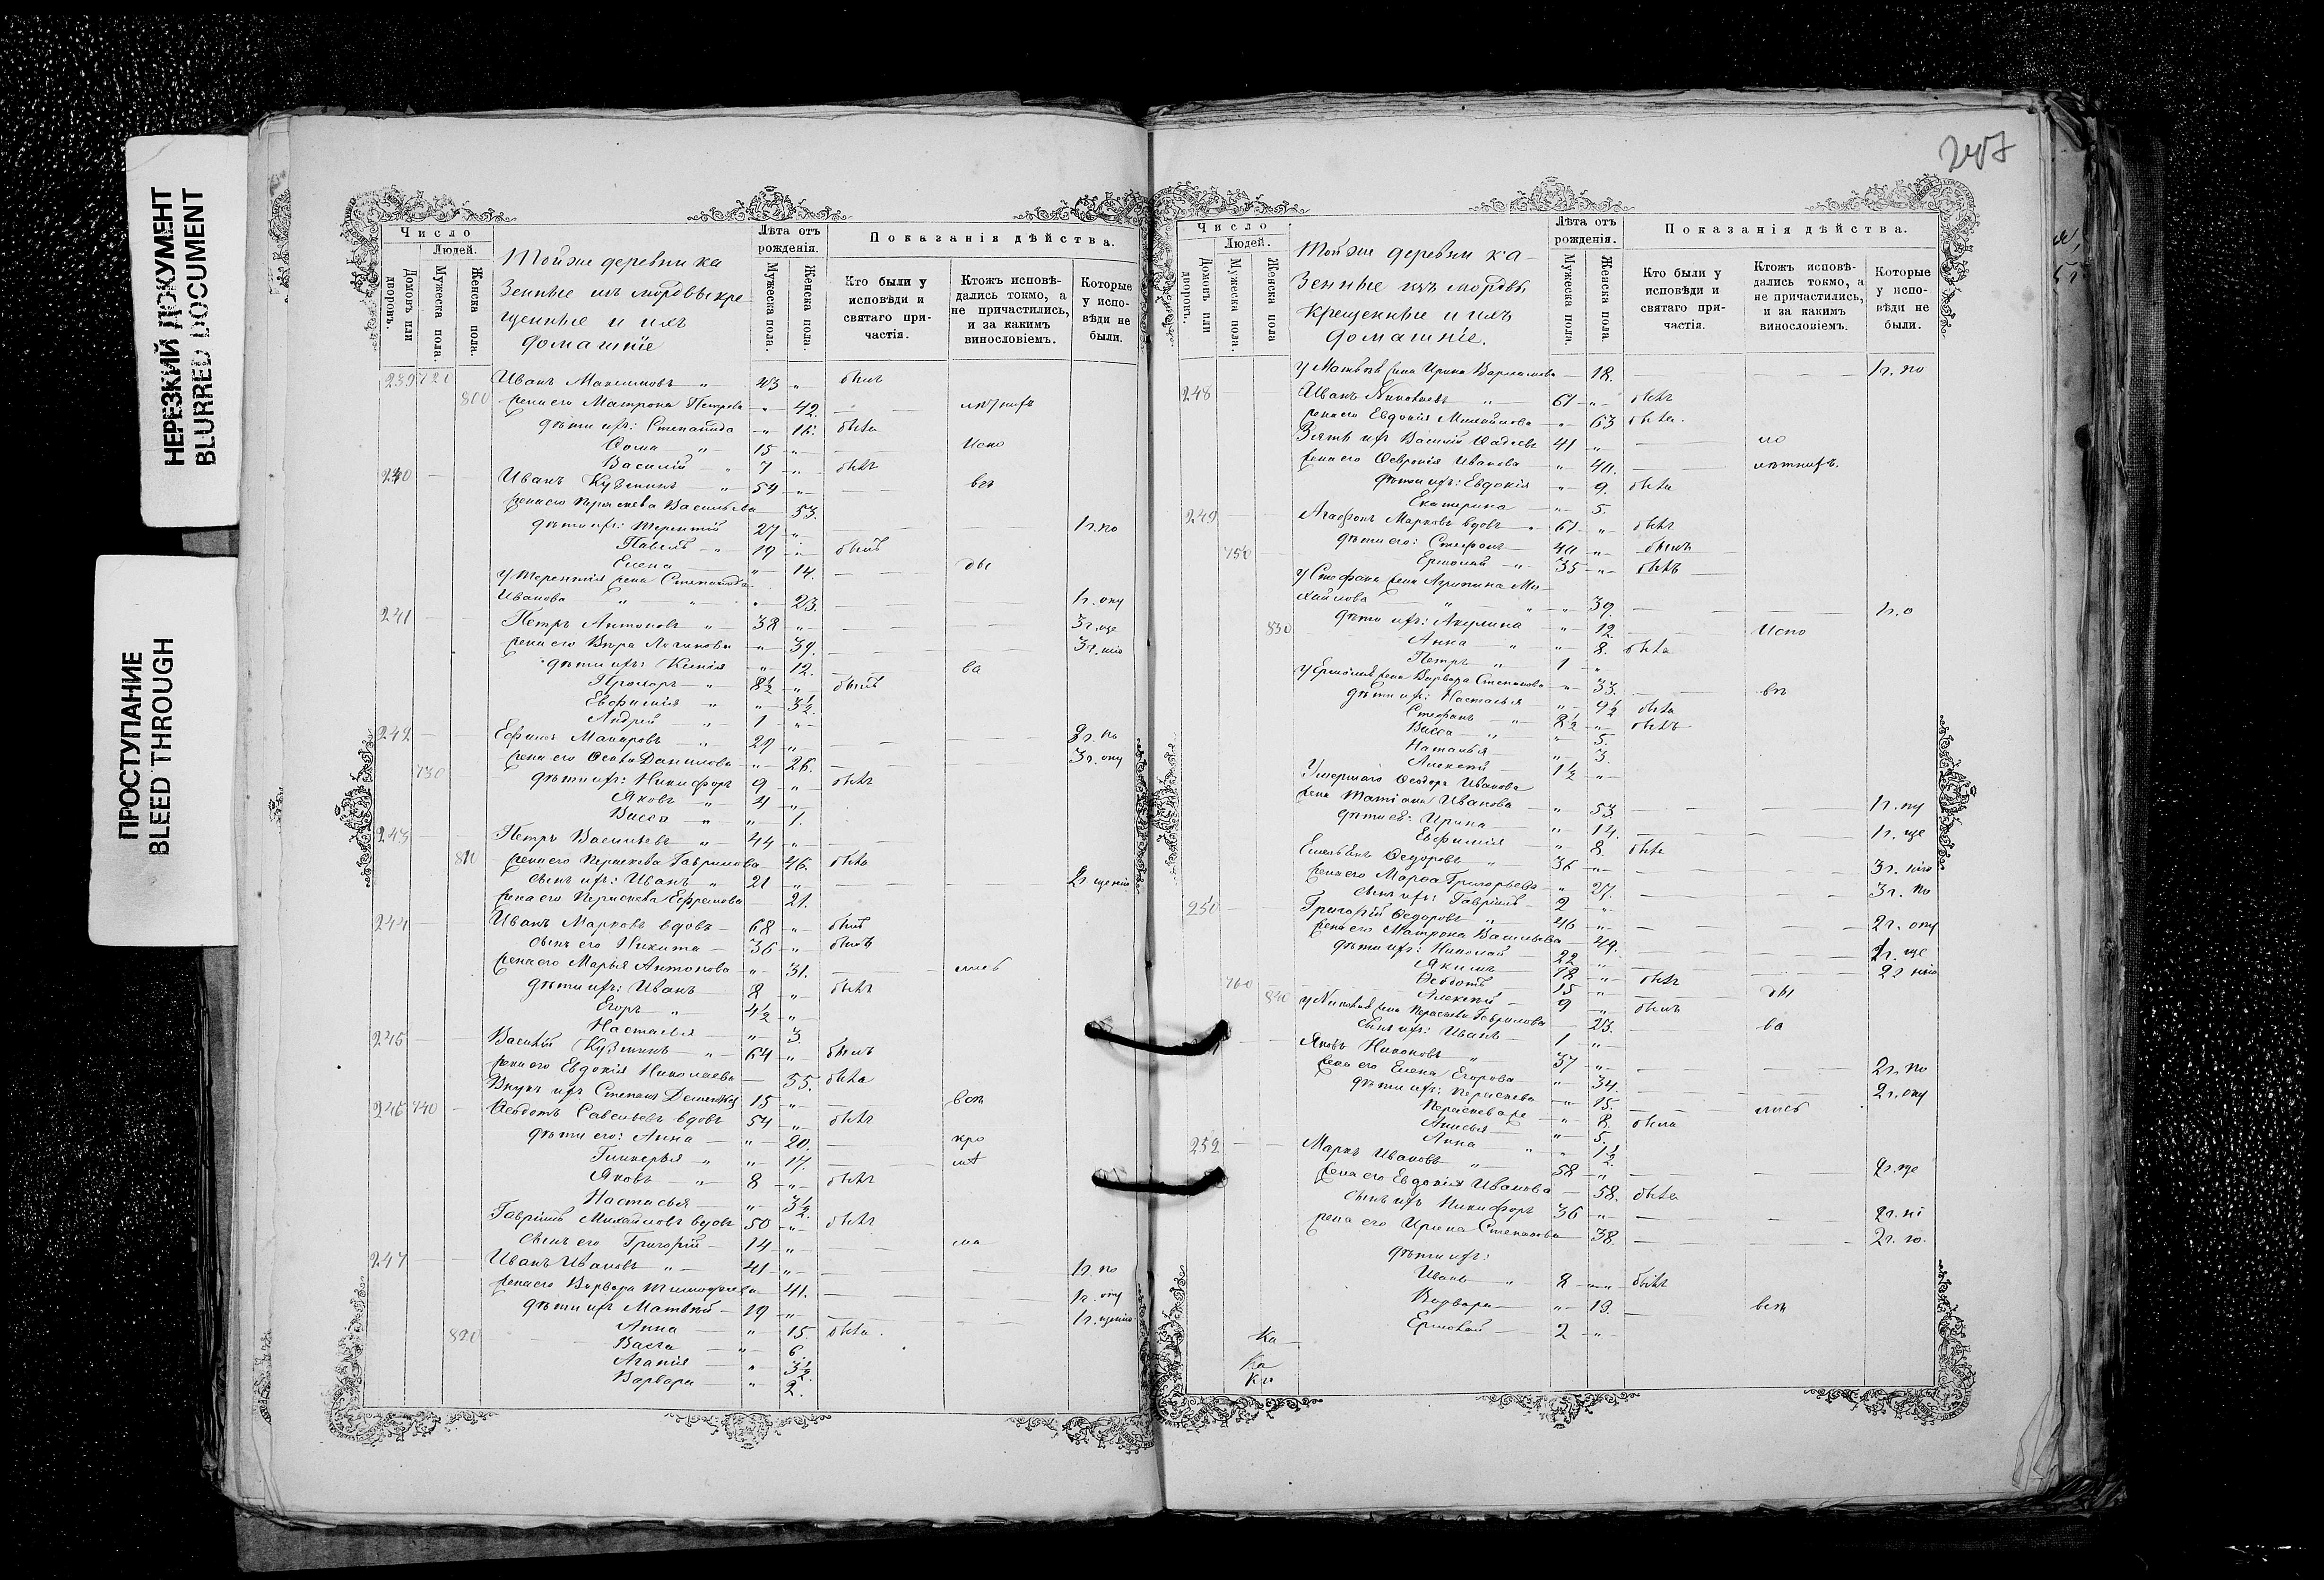 НЕРЕЗКИЙ ДОКУМЕНТ
BLURRED DOCUMENT
ПРОСТУПАНИЕ
BLEED THROUGH
Число
Людей.
Домовъ или дворовъ.
Мужеска пола.
Женска пола.
Тойже деревни ка
зенные изъ мордвы кре
щенные и ихъ
домашніе
Лѣта отъ рожденія.
Мужеска пола.
Женска пола.
Показанія дѣйства.
Кто были у исповѣди и святаго причастія.
Ктожъ исповѣдались токмо, а не причастились, и за какимъ винословіемъ.
Которые у исповѣди не были.
239 721 Иванъ Максимовъ 43 былъ
800 жена его Матрона Петрова 42.
дѣти ихъ: Степанида 18. была
Ѳома 15 Испо
Василій 7 былъ
240 Иванъ Кузминъ 54
жена его Параскева Васильева 53.
дѣти ихъ: Терентій 27 1г. по
Павелъ 19 былъ
Елена 14.
у Терентія жена Степанида
Иванова 23. 1г. опу
241 Петръ Антоновъ 38 3г. ще
жена его Вѣра Логинова 39. 3г. нію
дѣти ихъ: Ксенія 12. ва
Прохоръ 8½ былъ
Евфимія 3½.
Андрей 1
242 Ефимъ Макаровъ 27 по
жена его Ѳекла Данилова 26. 3г. опу
730 дѣти ихъ: Никифоръ 9 былъ
Яковъ 4
Васса 1.
243 Петръ Васильевъ 44
810 жена его Параскева Гаврилова 46. была
сынъ ихъ: Иванъ 21 щенію
жена его Параскева Ефремова 21.
244 Иванъ Марковъ вдовъ 68 былъ
сынъ его Никита 36 былъ
жена его Марья Антонова 31.
дѣти ихъ: Иванъ 8 былъ
Егоръ 4½
Настасья 3.
245 Василій Кузминъ 64 былъ
жена его Евдокія Николаева 55. была
Внукъ ихъ Степанъ 15
246 740 Ѳедотъ Савельевъ вдовъ 54 былъ
дѣти его: Анна 20. кро
Гликерья 17.
Яковъ 8 былъ
Настасья 3½.
Гаврiилъ Михайловъ вдовъ 50 былъ
сынъ его Григорій 14
247 Иванъ Ивановъ 41 1г. по
жена его Варвара Тимофеева 41. 1г. опу
дѣти ихъ Матвѣй 19 1г. щенію
820 Анна 15. была
Васса 6.
Агапія 3½.
Варвара 2.
247
Число
Людей.
Домовъ или дворовъ.
Мужеска пола.
Женска пола
Тойже деревни ка-
зенные изъ мордвы
крещенные и ихъ
домашніе.
Лѣта отъ рожденія.
Мужеска пола.
Женска пола.
Показанія дѣйства.
Кто были у исповѣди и святаго причастія.
Ктожъ исповѣдались токмо, а не причастились, и за какимъ винословіемъ.
Которые у исповѣди не были.
у Матвѣя жена Ирина Варламова 18. 1г. по
248 Иванъ Николаевъ 61 былъ
жена его Евдокія Михайлова 63 была.
Зять ихъ Василій Фадеевъ 41
жена его Ѳевронія Иванова 40.
дѣти ихъ: Евдокія 9. была
Екатерина 5.
249 Агафонъ Марковъ вдовъ 61 былъ
750 дѣти его: Стефанъ 40 былъ
Ермолай 35 былъ
у Стефана жена Агрипина Ми-
хайлова 39. 1г. о
830 дѣти ихъ: Акулина 12. Испо
Анна 8. была
Петръ 1
у Ермолая жена Варвара Степанова 33.
дѣти ихъ: Настасья 9½ была
Стефанъ 8½ былъ
Васса 5.
Наталья 3.
Алексѣй 1½
Умершаго Ѳеодора Иванова
жена Татіана Иванова 53. 1г. пу
дѣти ея: Ирина 14. 1г. ще
Евфимія 8. была
Емельянъ Ѳедоровъ 36 3г. нію
жена его Марѳа Григорьева 27. 3г. по
сынъ ихъ: Гаврiилъ 2
250 Григорій Ѳедоровъ 46 2г. опу
жена его Матрона Васильева 49. ще
дѣти ихъ: Николай 22 2г. нію
Якимъ 18 былъ
760 Ѳедотъ 15
840 Алексѣй 9 былъ
у Николая жена Параскева Гаврилова 23. ва
сынъ ихъ: Иванъ 1
Яковъ Никоновъ 37 2г. по
жена его Елена Егорова 34. 2г. опу
дѣти ихъ: Параскева 15.
Параскева 8. была
Анисья 5.
Анна 1½.
252 Маркъ Ивановъ 58 2г. ще
жена его Евдокія Иванова 58. была
сынъ ихъ Никифоръ 36 2г. ні
жена его Ирина Степанова 38. 2г. ю.
дѣти ихъ:
Иванъ 8 былъ
Варвара 13.
Ермолай 2